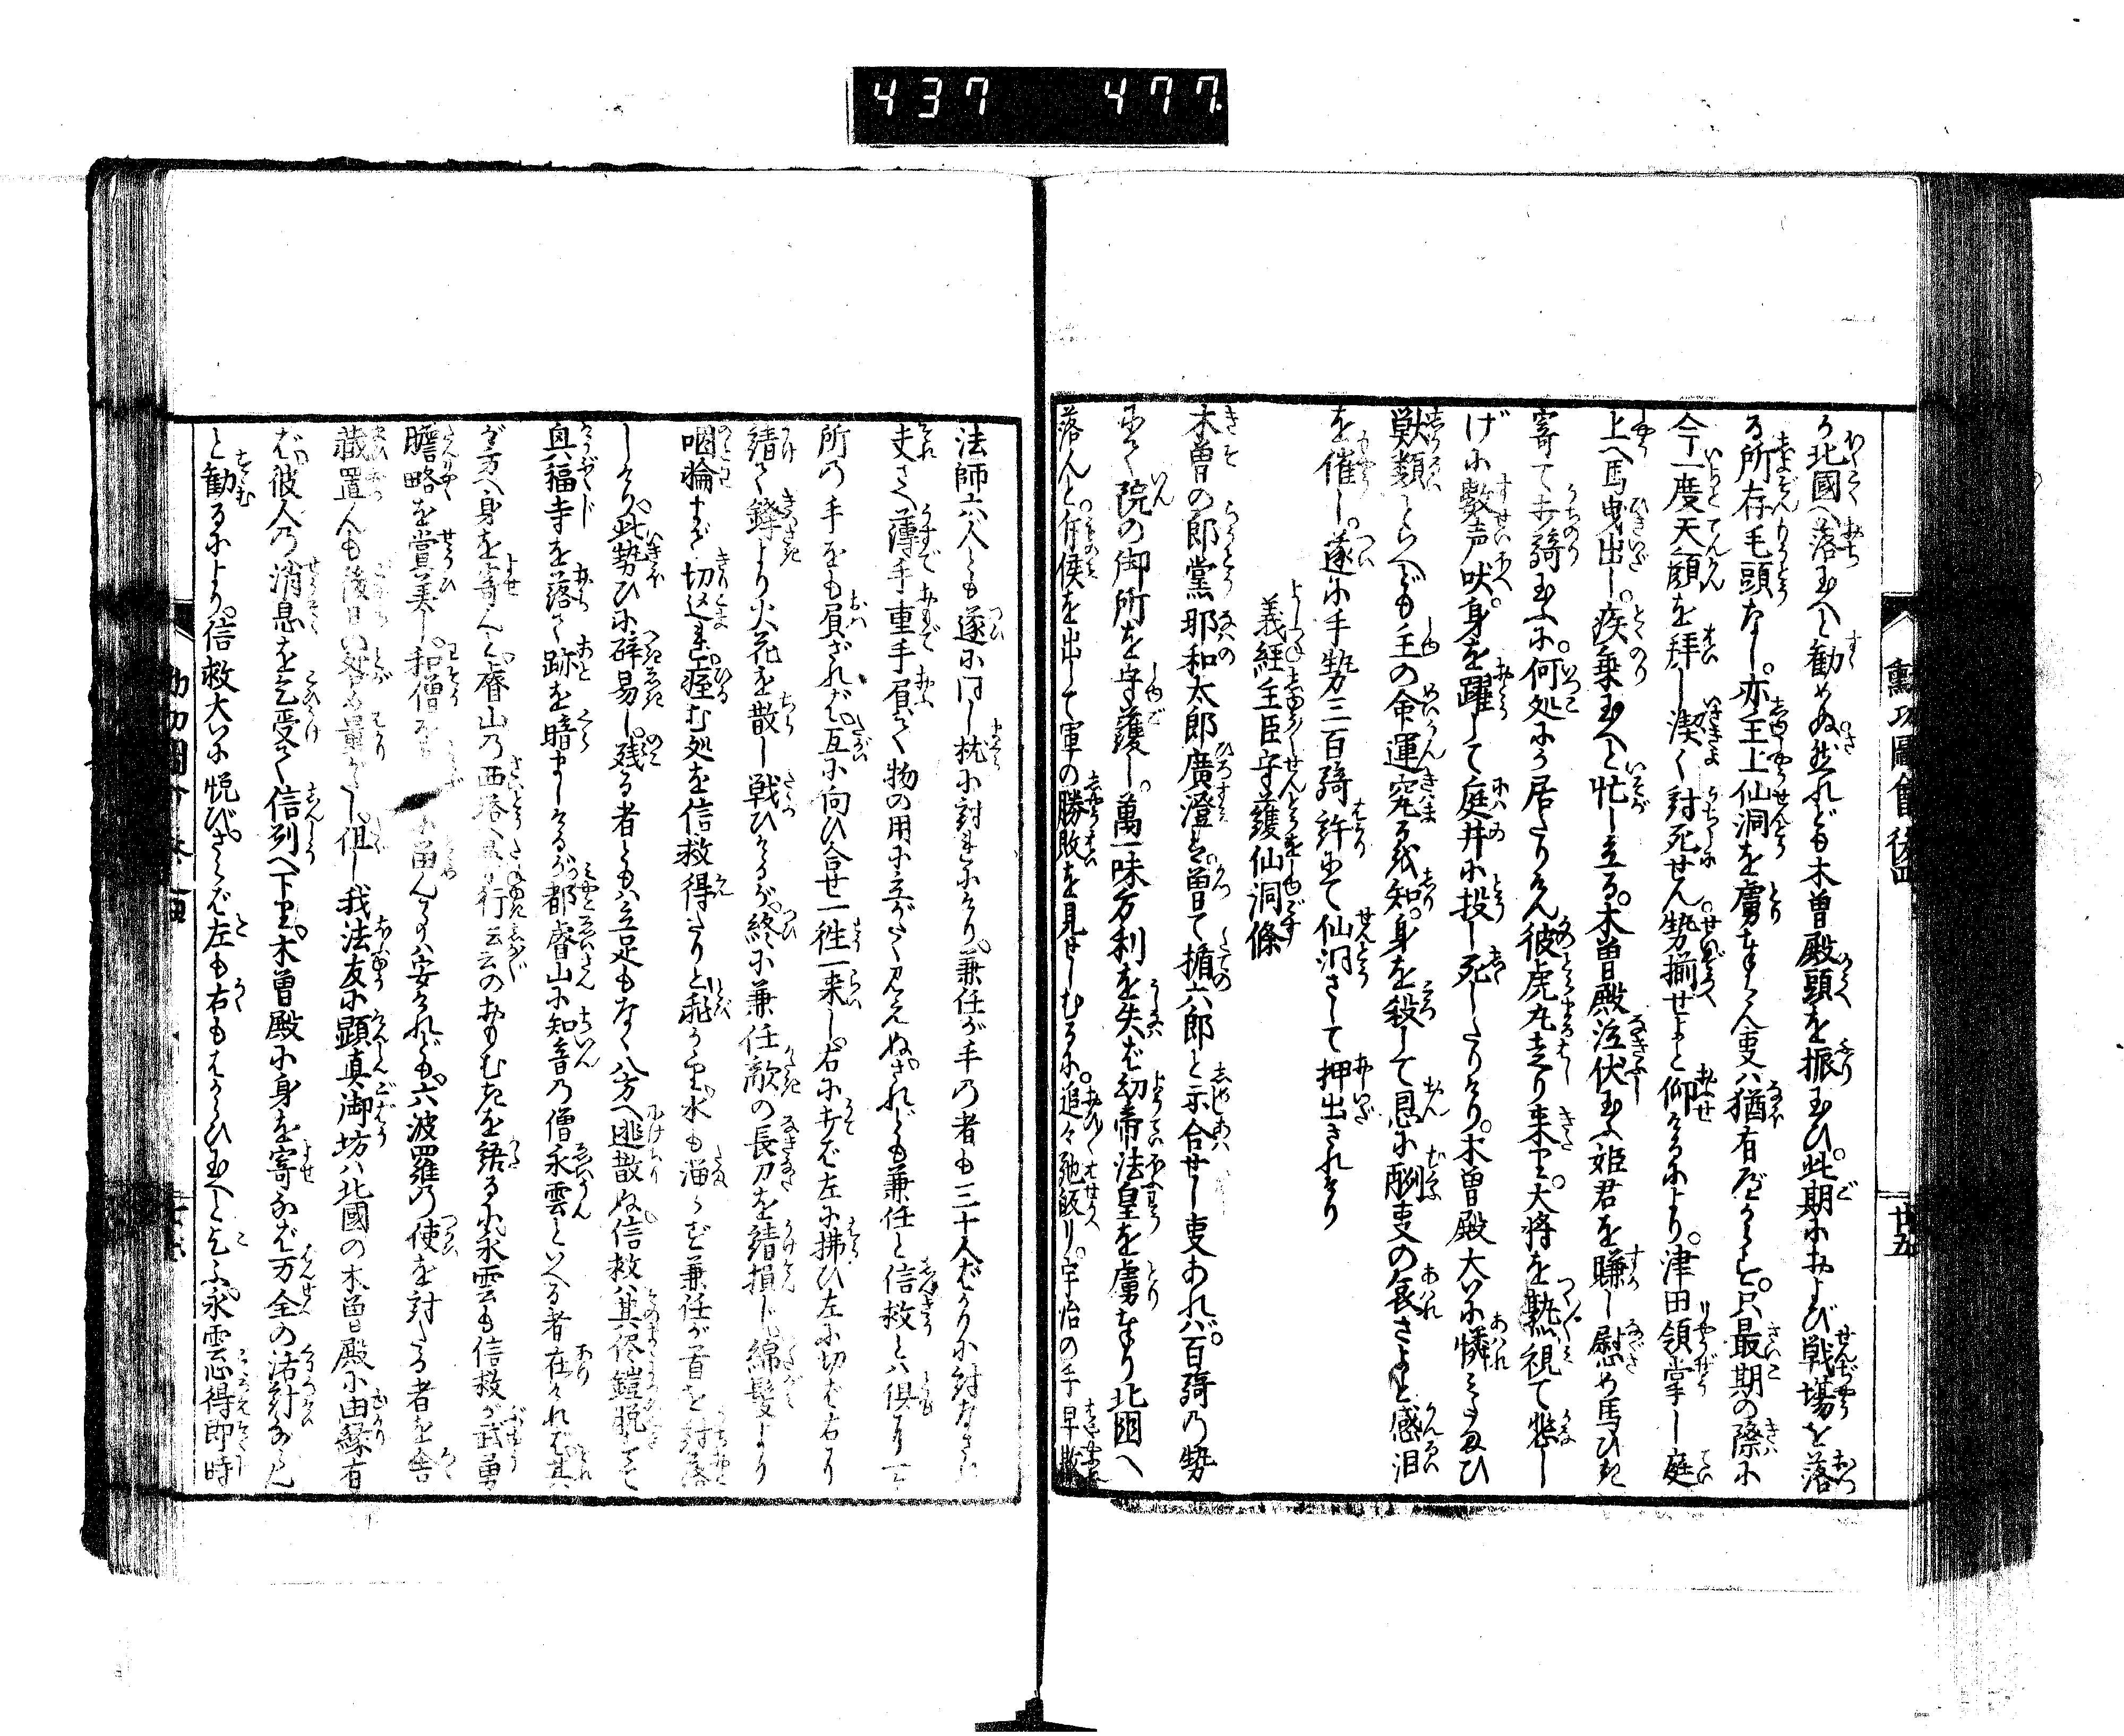 437 477.
勲功圖會後四
廿五
う北國へ落玉へと勧めぬ然れども木曽殿頭を振玉ひ。此期におよび戦場を落
る所存毛頭なし。亦主上仙洞を虜奉らん事ハ猶有べからず。只最期の際に
今一度天顔を拝し潔く討死せん。勢揃せよと仰けるにより。津田領掌し庭
上へ馬曳出し。疾乗玉へと忙し立る。木曽殿泣伏玉ふ姫君を賺し慰め馬ひき
寄て打騎玉ふに。何処にか居たりけん彼虎丸走り来り。大将を熟視て悲し
げに数声吠。身を躍して庭井に投し死したりけり。木曽殿大いに憐みたまひ
獣類といへども主の命運究るを知。身を殺して恩に酬事の哀さよと感泪
を催し。遂に手勢三百騎許にて仙洞さして押出されけり
義経主臣守護仙洞條
木曽の郎黨那和太郎廣澄は。曽て楯六郎と示合せし事あれバ。百騎の勢
にて院の御所を守護し。萬一味方利を失ハゞ幼帝法皇を虜奉り北國へ
落んと。斥候を出して軍の勝敗を見せしむるに。追々馳皈り。宇治の手早散
法師六人とも遂に同し枕に討れにけり。兼任が手の者も三十人ばかりに討なされ
夫さへ薄手重手負て物の用に立がたく見えぬ。されども兼任と信救とハ倶に一ヶ
所の手をも負ざれバ。互に向ひ合せ一徃一来し。右に打バ左に拂ひ左に切バ右に
請て鋒より火花を散し戦ひけるが。終に兼任敵の長刀を請損じ。綿髪より
咽輪まで切込まれ。疼む処を信救得たりと飛かゝり。水も溜らず兼任が首を討落
しけり。此勢ひに辟易し。残る者ともハ立足もなく八方へ逃散ぬ信救ハ其侭鎧脱すて
真福寺を落て跡を暗ましけるが。都睿山に知音の僧永雲といへる者在けれバ。其
が方へ身を寄んと。睿山の西塔へ行云云のおもむきを語るに。永雲も信救が武勇
膽略を賞美し。和僧を留んハ安けれども。六波羅の使を討たる者を舎
蔵置んも後日の咎め量がたし。但し我法友に顕真御坊ハ北國の木曽殿に由縁有
バ。彼人の消息を乞受て信列へ下り。木曽殿に身を寄なバ万全の活計ならん
と勧るにより。信救大いに悦び。さらバ左も右もはからひ玉へと乞ふ。永雲心得即時